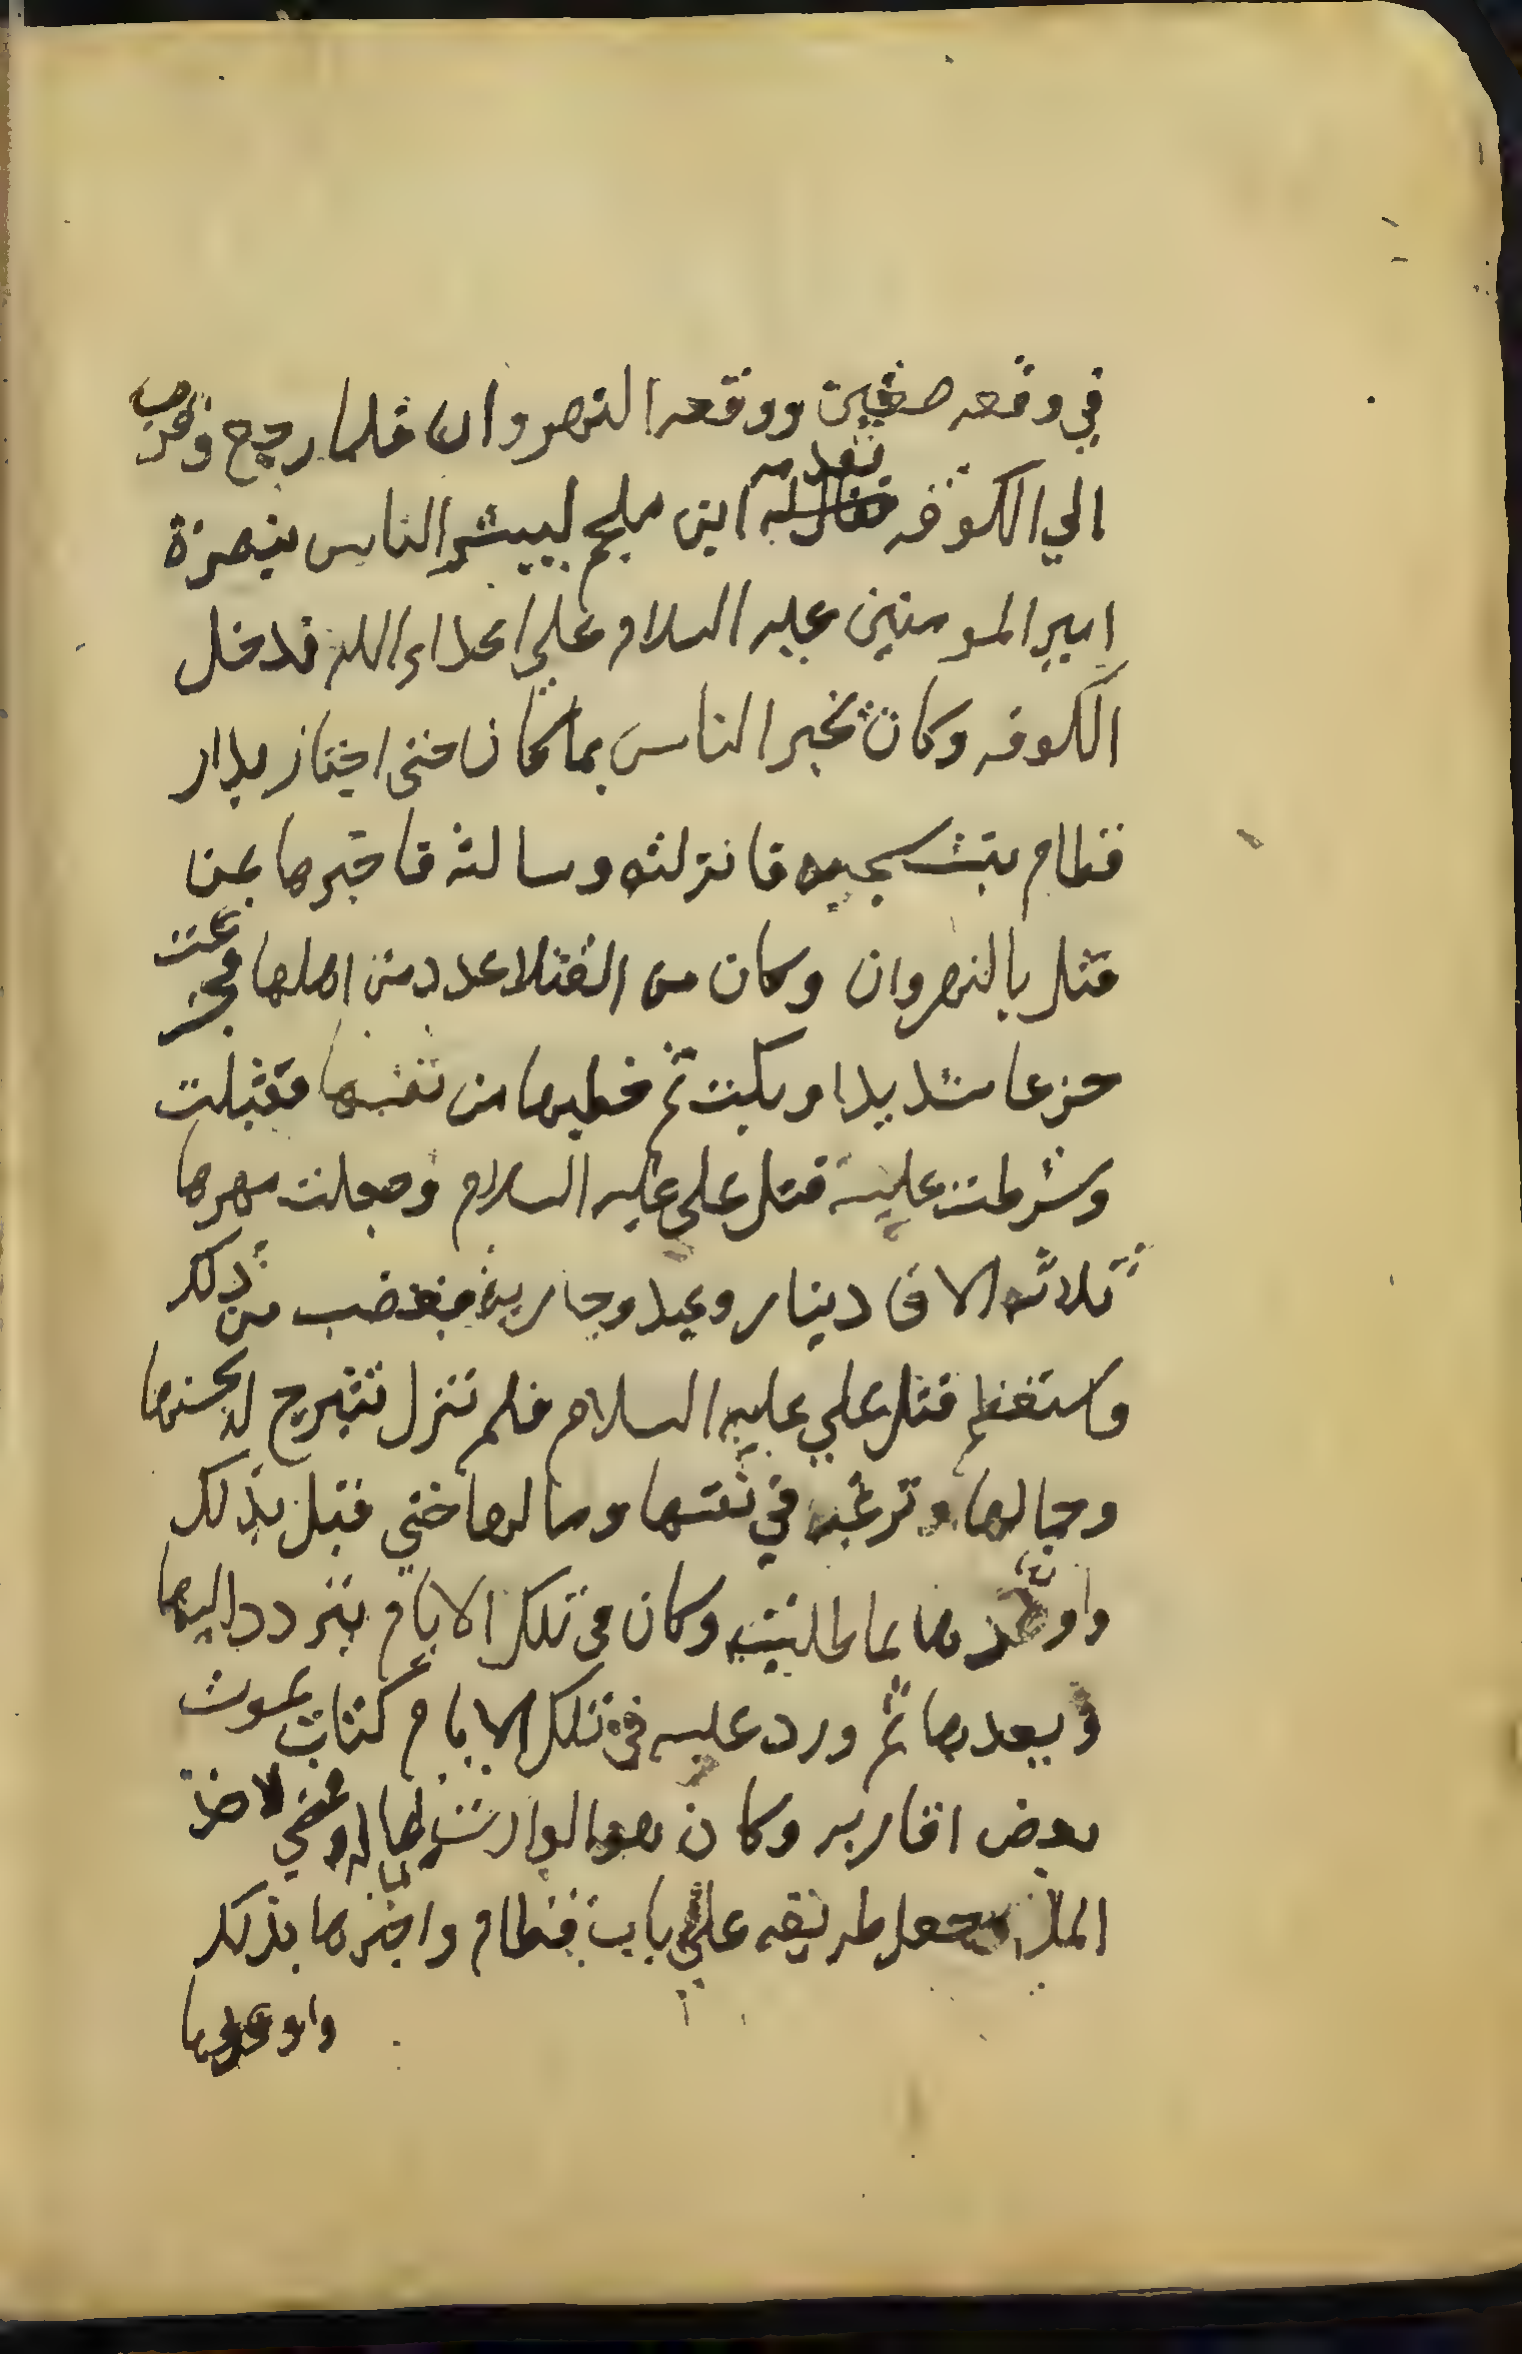 في وقعه صفين ووقعه النهروان فلما رجع وقرب
الي الكوفه تقدمه ابن ملجم ليبشر الناس بنصرة
امير المومنين عليه السلام علي اعداء الله فدخل
الكوفه وكان يخبر الناس بما كان حتى اجتاز بدار
قطام بنت سحيمه فانزلته وسالته فاخبرها عن
قتل بالنهروان وكان من القتلا عدد من اهلها فجزعت
جزعا شديدا وبكت ثم خطبها من نفسها فقبلت
وشرطت عليه قتل علي عليه السلام وجعلت مهرها
ثلاثه الاف دينار وعبد وجارية فغضب من ذلك
واستعظم قتل علي عليه السلام فلم تزل تتبرج له بحسنها
وجمالها وترغبه في نفسها ومالها حتي قبل بذلك
واوعدها بما طلبته وكان في تلك الايام يتردد اليها
ويعدها ثم ورد عليه في تلك الايام كتاب بموت
بعض اقاربه وكان هو الوارث لماله ومضي لاخذ
المال فجعل طريقه علي باب قطام واخبرها بذلك
واوعدها